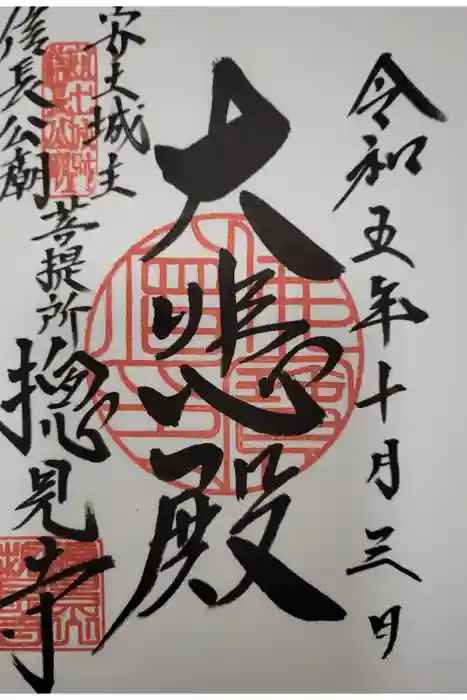 令和五年十月三日
大悲殿
安土城主
信長公廟
菩提所
摠見寺